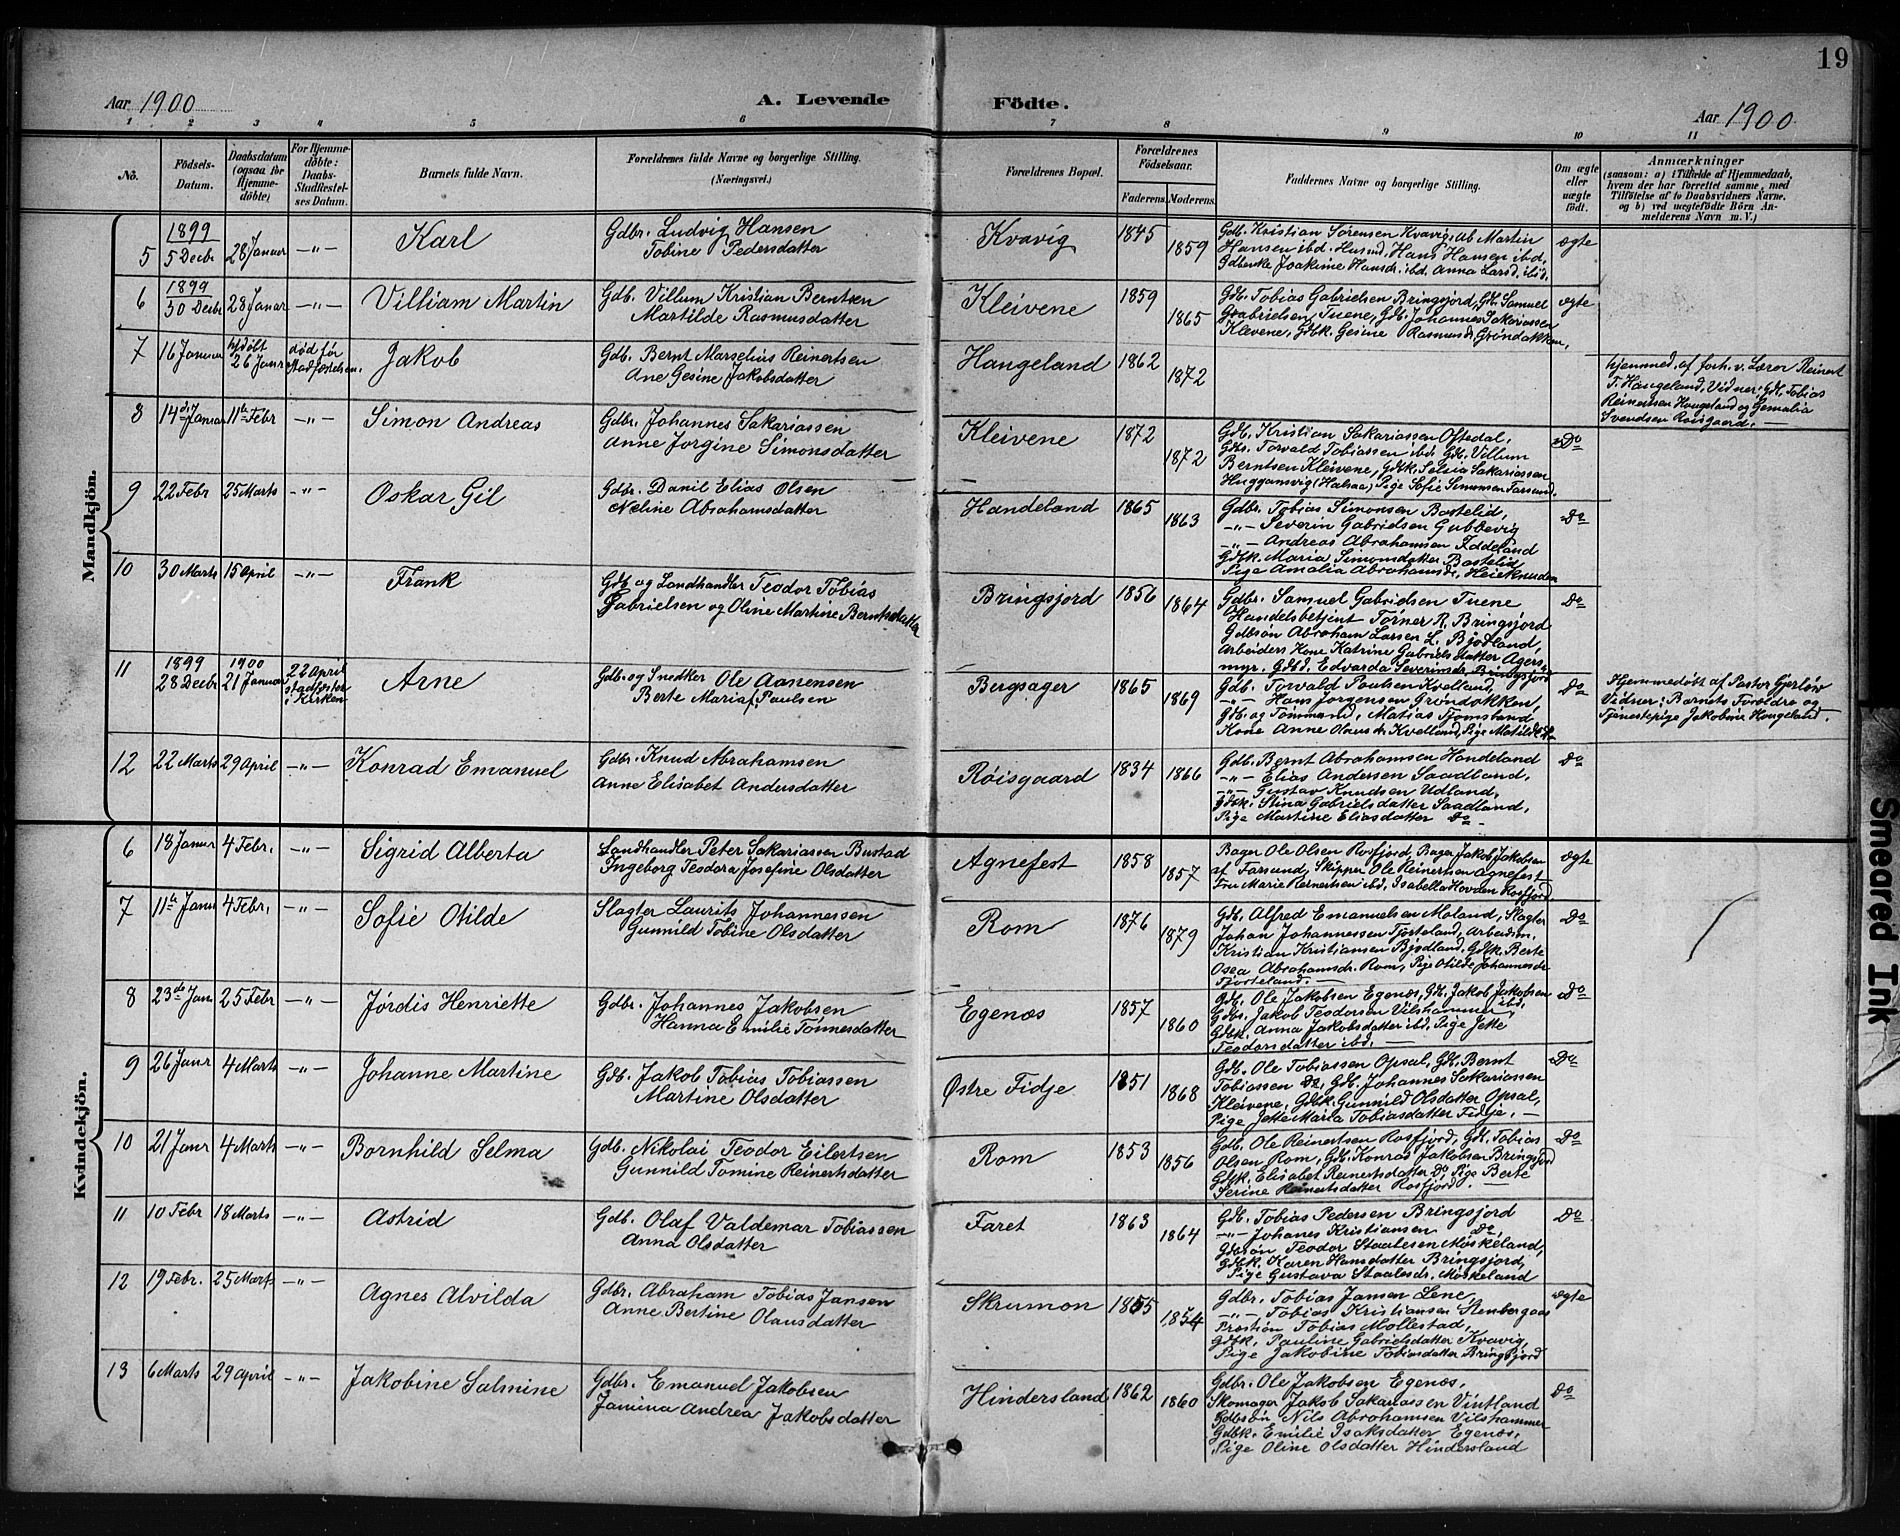 19
Aar 1900
A. Levende
Födte.
Aar 1900
1 2 3 4 5 6 7 8 9 10 11
No.
Födsels-
Datum.
Daabsdatum
(ogsaa for
Hjemme-
döbte)
For Hjemme-
döbte:
Daabs-
Stadfæstel-
ses Datum.
Barnets fulde Navn.
Forældrenes fulde Navne og borgerlige Stilling.
(Næringsvei.)
Forældrenes Bopæl.
Forældrenes
Födselsaar.
Faderens. Moderens.
Faddernes Navne og borgerlige Stilling.
Om ægte
eller
uægte
födt.
Anmærkninger
(saasom: a) i Tilfælde af Hjemmedaab,
hvem der har forrettet samme, med
Tilföielse af to Daabsvidners Navne,
og b) ved uægtefödte Börn An-
melderens Navn m. V.)
Mandkjön.
5
1899
5 Decbr
28 Januar
-"-
Karl
Gdbr. Ludvig Hansen
Tobine Pedersdatter
Kvavig
1845
1859
Gdb. Kristian Sørensen Kvavig, ub Martin
Hansen ibd. Husmd. Hans Hansen ibd.
Gdbenke Joakime Hansdr. ibd. Anna Larsd. ibid.
ægte
6
1899
30 Decbr
28 Januar
-"-
Villiam Martin
Gdb. Villum Kristian Berntsen
Martilde Rasmusdatter
Kleivene
1859
1865
Gdb. Tobias Gabrielsen Bringsjord, Gdb. Samuel
Gabrielsen Tuene, Gdb. Johannes Sakariassen
Kleivene, Gdbk. Gesine Rasmusdr. Grøndokken.
ægte
7
16 Januar
hjdøbt
26 Janr
død før
Stadfæstelsen.
Jakob
Gdb. Bernt Marselius Reinertsen
Ane Gesine Jakobsdatter
Haugeland
1862
1872
hjemmed. af forh. v. Lærer Reinert
T. Haugeland, Vidner: Gdb. Tobias
Reinertsen Haugeland og Gemalia
Svendsen Røisgaard. —
8
14de Januar
11te Febr
-"-
Simon Andreas
Gdbr. Johannes Sakariassen
Anne Jorgine Simonsdatter
Kleivene
1872
1872
Gdb. Kristian Sakariassen Oftedal,
Gdbr. Torvald Tobiassen ibd. Gdb. Villum
Berntsen Kleivene, Gdbk. Selsia Sakariassen
Huggamsvig (Halsaa) Pige Sofie Simonsen Farsund.
Do
9
22 Febr
25 Marts
-"-
Oskar Gil
Gdbr. Danil Elias Olsen
Neline Abrahamsdatter
Handeland
1865
1863
Gdbr. Tobias Simonsen Bastelid,
-"- Severin Gabrielsen Gubbevig
-"- Andreas Abrahamsen Eddeland
Gdbk. Maria Simonsdatter Bastelid
Pige Amalia Abrahamsdr. Heieknuden
Do
10
30 Marts
15 April
-"-
Frank
Gdb og Landhandler Teodor Tobias
Gabrielsen og Oline Martine Berntsdatter
Bringsjord
1856
1864
Gdbr. Samuel Gabrielsen Tuene
Handelsbetjent Torner R. Bringsjord
Gdbsøn Abraham Larsen L. Bjødland,
Arbeiders Kone Katrine Gabrielsdatter Agers-
myr. Gdbd. Edvarda Severinsdr. Bringsjord
Do
11
1899
28 Decbr
1900
21 Januar
22 April
stadfæstet
i Kirken
Arne
Gdb. og Snedker Ole Aanensen
Berte Maria f. Paulsen
Bergsager
1865
1869
Gdb. Torvald Paulsen Kvelland,
-"- Hans Jørgensen Grøndokken,
Gdb. og Tømmermd. Matias Tjomsland
Kone Anne Olausdr. Kvelland, Pige Matilde
Do
Hjemmedøbt af Pastor Gjerløw
Vidner: Barnets Forældre og
Tjenestepige Jakobine Haugeland.
12
22 Marts
29 April
-"-
Konrad Emanuel
Gdbr. Knud Abrahamsen
Anne Elisabet Andersdatter
Røisgaard
1834
1866
Gdb. Bernt Abrahamsen Handeland
-"- Elias Andersen Saadland,
-"- Gustav Knudsen Udland,
Gdbk. Stina Gabrielsdatter Saadland,
Pige Martine Eliasdatter Do
Do
Kvindekjön.
6
18 Janur
4 Febr.
-"-
Sigrid Alberta
Landhandler Peter Sakariassen Bustad
Ingeborg Teodora Josefine Olsdatter
Agnefest
1858
1857
Bager Ole Olsen Rosfjord, Bager Jakob Jakobsen
af Farsund, Skipper Ole Reinertsen Agnefest
Fru Marie Reinertsen ibd, Isabella Hovden Rosfjord
ægte
7
11te Janr
4 Febr.
-"-
Sofie Otilde
Slagter Laurits Johannessen
Gunnild Tobine Olsdatter
Rom
1876
1879
Gdb. Alfred Emanuelsen Moland, Slagter
Johan Johannessen Fjorteland, Arbeidsm.
Kristian Kristiansen Bjødland, Gdbk. Berte
Osea Abrahamsdr. Rom, Pige Otilde Johannesdr
Fjorteland. —
Do
8
23de Jan
25 Febr
-"-
Jørdis Henriette
Gdbr. Johannes Jakobsen
Hanna Emilie Tønnesdatter
Egenæs
1857
1860
Gdb. Ole Jakobsen Egenæs, Gdb. Jakob Jakobsen
ibd.
Gdbr. Jakob Teodorsen Vilshammer,
Gdbk. Anna Jakobsdatter ibd. Pige Jette
Teodorsdatter ibd. —
Do
9
26 Janr
4 Marts
-"-
Johanne Martine
Gdb. Jakob Tobias Tobiassen
Martine Olsdatter
Østre Fidje
1851
1868
Gdb. Ole Tobiassen Opsal, Gdb. Bernt
Tobiassen Do, Gdb. Johannes Sakariassen
Kleivene, Gdbk. Gunnild Olsdatter Opsal,
Pige Jette Maria Tobiasdatter Fidje. —
Do
10
21 Janr
4 Marts
-"-
Bornhild Selma
Gdb. Nikolai Teodor Eilertsen
Gunnild Tomine Reinertsdatter
Rom
1853
1856
Gdb. Ole Reinertsen Rosfjord, Gdb. Tobias
Olsen Rom, Gdb. Konrad Jakobsen Bringsjord
Gdbk. Elisabet Reinertsdatter Do, Pige Berte
Serine Reinertsdatter Rosfjord. —
Do
11
10 Febr
18 Marts
-"-
Astrid
Gdb. Olaf Valdemar Tobiassen
Anna Olsdatter
Faret
1863
1864
Gdb. Tobias Pedersen Bringsjord
-"- Johanes Kristiansen Do,
Gdbsøn Teodor Staalesen Møskeland,
Gdbk. Karen Hansdatter Bringsjord,
Pige Gustava Staalesdr. Møskeland
Do
12
19 Febr.
25 Marts
-"-
Agnes Alvilda
Gdbr. Abraham Tobias Jansen
Anne Bertine Olausdatter
Skrumon
1855
1854
Gdbr. Tobias Jansen Lene,
-"- Tobias Kristiansen Stenbergaas
Tobias Mollestad,
Gdbk. Pauline Gabrielsdatter Kvavig,
Pige Jakobine Tobiasdatter Bringsjord
ægte
13
6 Marts
29 April
-"-
Jakobine Salmine
Gdbr. Emanuel Jakobsen
Jamina Andrea Jakobsdatter
Hindersland
1862
1860
Gdbr. Ole Jakobsen Egenæs,
Skomager Jakob Sakariassen Vintland
Gdbsøn Nils Abrahamsen Vilshammer
Gdbk. Emilie Isaksdatter Egenæs,
Pige Oline Olsdatter Hindersland
Do
Smeared Ink